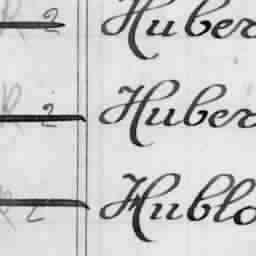 R 2 Huber
R 2 Huber
R 2 Hublo